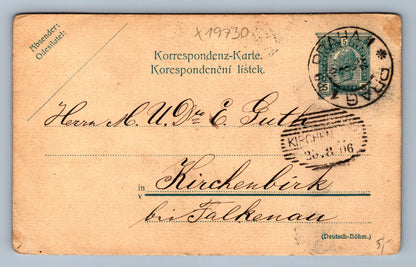 x19730
Absender:
Odesílatel:
Korrespondenz-Karte.
Korespondenční lístek.
PRAHA 1
PRAG
Herrn M. U. Dr E. Guth
KIRCHEN
26.8.06
in Kirchenbirk
bei Falkenau
(Deutsch-Böhm.)
5,-